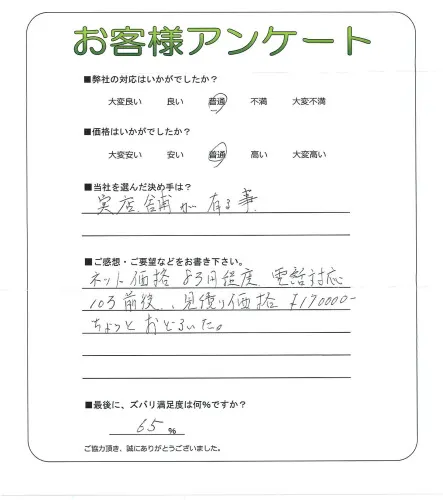 お客様アンケート
■弊社の対応はいかがでしたか?
大変良い 良い 普通 不満 大変不満
■価格はいかがでしたか?
大変安い 安い 普通 高い 大変高い
■当社を選んだ決め手は?
実店舗が有る事
■ご感想・ご要望などをお書き下さい。
ネット価格 8万円程度 電話対応
10万前後、見積り価格 ¥170000-
ちょっとおどろいた。
■最後に、ズバリ満足度は何%ですか?
65%
ご協力頂き、誠にありがとうございました。